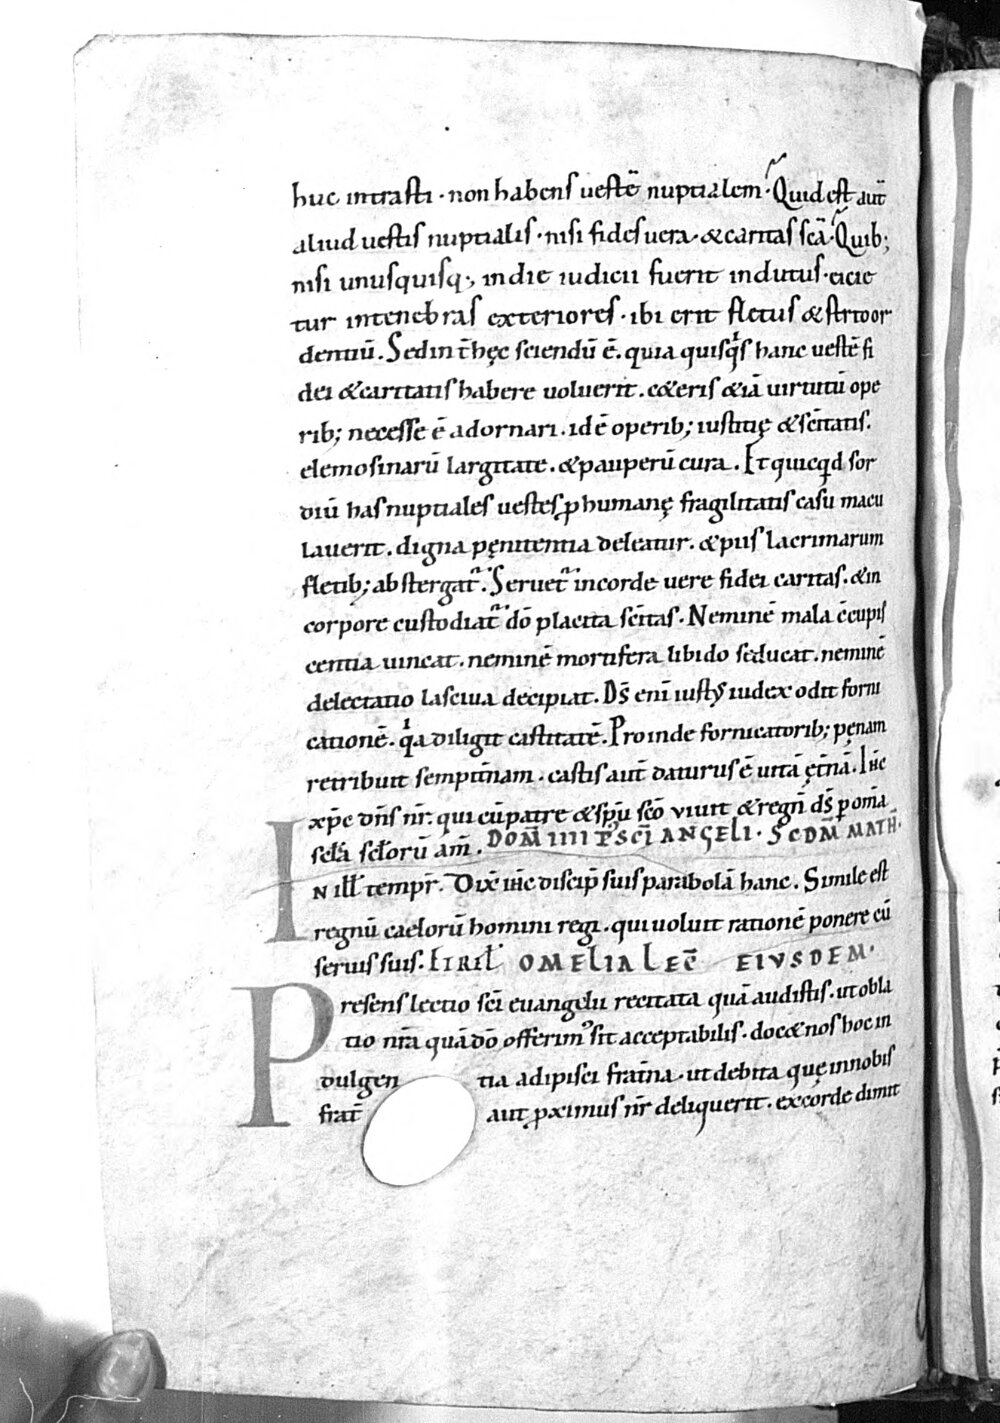 huc intrasti · non habens uestē nuptialem · Quid est aut̄
aliud uestis nuptialis · nisi fides uera · & caritas sc̄a · Quib;
nisi unusquisq;, in die iudicii fuerit indutus · eicie
tur in tenebras exteriores · ibi erit fletus & stridor
dentiū. Sed int̄ hęc sciendū ē. quia quisqͥs hanc uestē fi
dei & caritatis habere uoluerit. c&eris &iā uirtutū ope
rib; necesse ē adornari. id ē operib; iustitię & sc̄itatis.
elemosinarū largitate. & pauperū cura. Et quicq̇d sor
diū has nuptiales uestes ꝑ humanę fragilitatis casu macu
lauerit. digna pęnitentia deleatur. & piis lacrimarum
fletib; abstergat᷑. Seruet᷑ in corde uere fidei caritas. & in
corpore custodiat᷑ dō placita sc̄itas. Neminē mala c̄cupis
centia uincat. neminē mortifera libido seducat. neminē
delectatio lasciua decipiat. Dş̄ eni iustꝰ iudex odit forni
cationē. qͥa diligit castitatē. Proinde fornicatorib; pęnam
retribuit sempit̄nam. castis aut̄ daturus ē uitā ęt̄nā. Ih̄c
xp̄c dn̄s nr̄. qui cū patre & sp̄u sc̄o viuit & regn̄ ds̄ p om̄ia
sc̄la scl̄orū am̄. DOM̄ IIII P̄ SC̄I ANGELI · SCDM̄ MATH̄·
IN ill̄ tempr̄. Dix̄ ih̄c discip̄ suis parabolā hanc. Simile est
regnū caelorū homini regi. qui uoluit rationē ponere cū
seruis suis. ET REL̄ OMELIA LEC̄ EIVSDEM·
Presens lectio sc̄i euangelii recitata quā audistis. ut obla
tio nr̄a quā dō offerimꝰ sit acceptabilis. doc& nos hoc in
dulgen tia adipisci frat̄na. ut debita quę in nobis
frat̄ aut ꝓximus nr̄ deliquerit. ex corde dimit